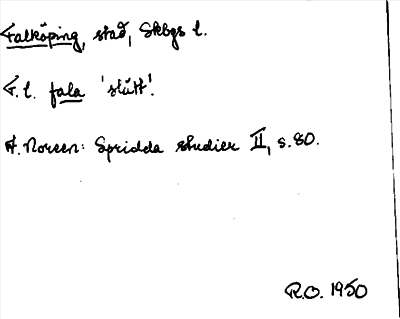 Falköping, stad, Skbgs l.
F.l. fala 'slätt'.
A. Noreen: Spridda studier II, s. 80.
R.O. 1950